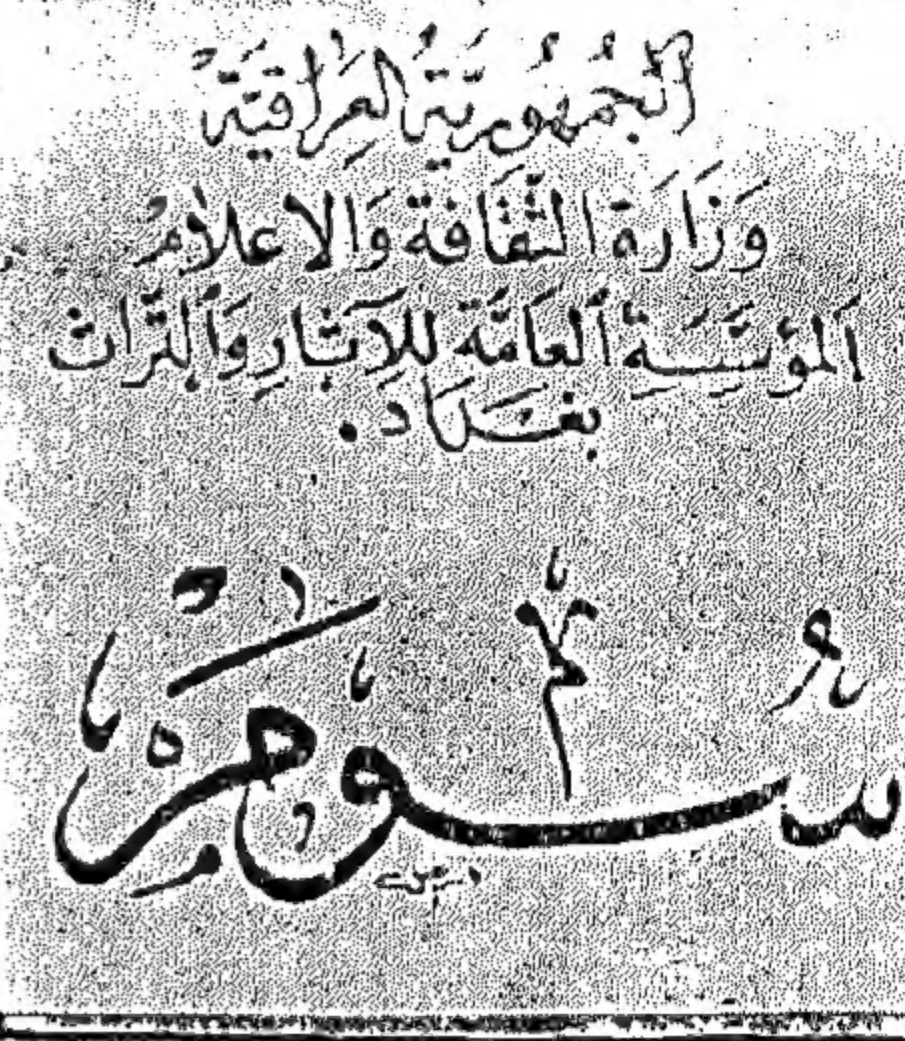 اَلجُمْهُورِيَّةُ العِرَاقِيَّةُ
وَزَارَة الثَّقَافة وَالاعلامُ
المؤسَّسَةِ العَامَّة للآثَارِ وَالتّرَاث
بغَدَاد.
سُومَر